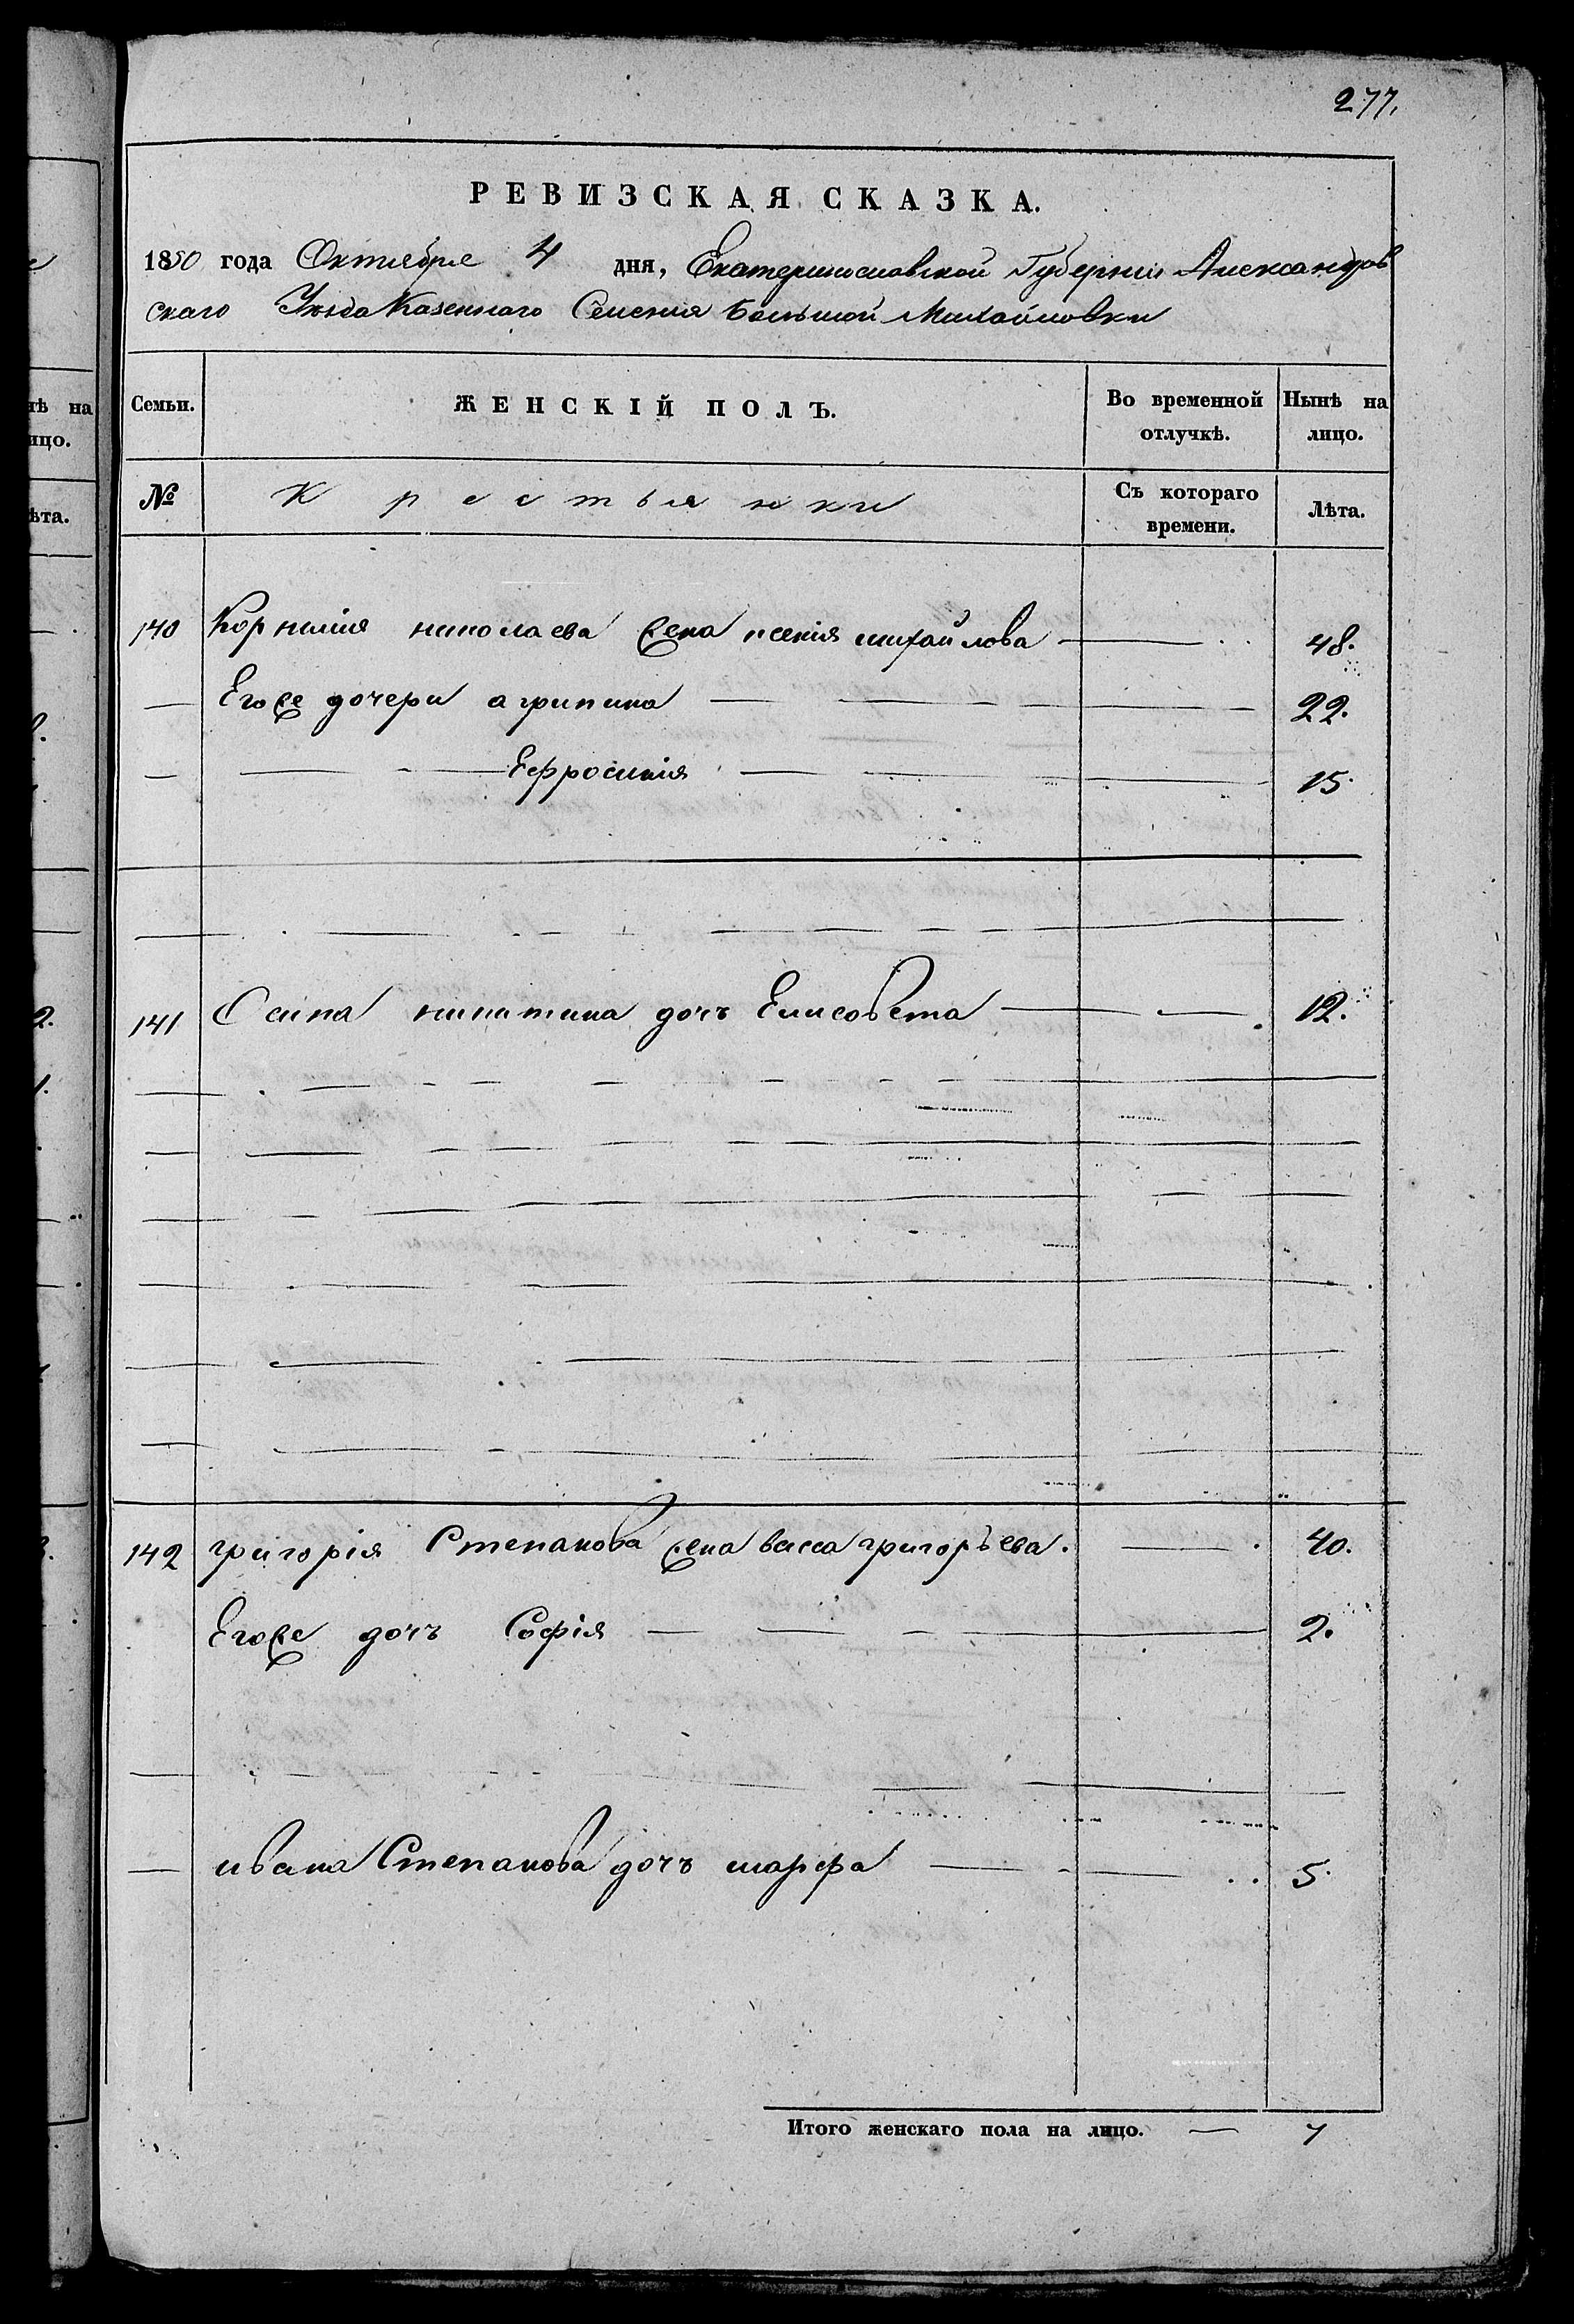 277.
РЕВИЗСКАЯ СКАЗКА.
1850 года Октября 4 дня, Екатеринославской Губернiи Александров
скаго Уѣзда Казеннаго Селенiя Большой Михайловки
Семьи. ЖЕНСКIЙ ПОЛЪ. Во временной отлучкѣ. Нынѣ на лицо.
№ Крестьянки Съ котораго времени. Лѣта.
140 Корнилiя николаева жена ксенiя михайлова 48.
Егоже дочери агрипина 22.
Ефросинiя 15.
141 Осипа никитина дочь Елисавета 12.
142 григорiя Степанова жена васса григорьева. 40.
Егоже дочь Софiя 2.
ивана Степанова дочь марфа 5.
Итого женскаго пола на лицо. 7